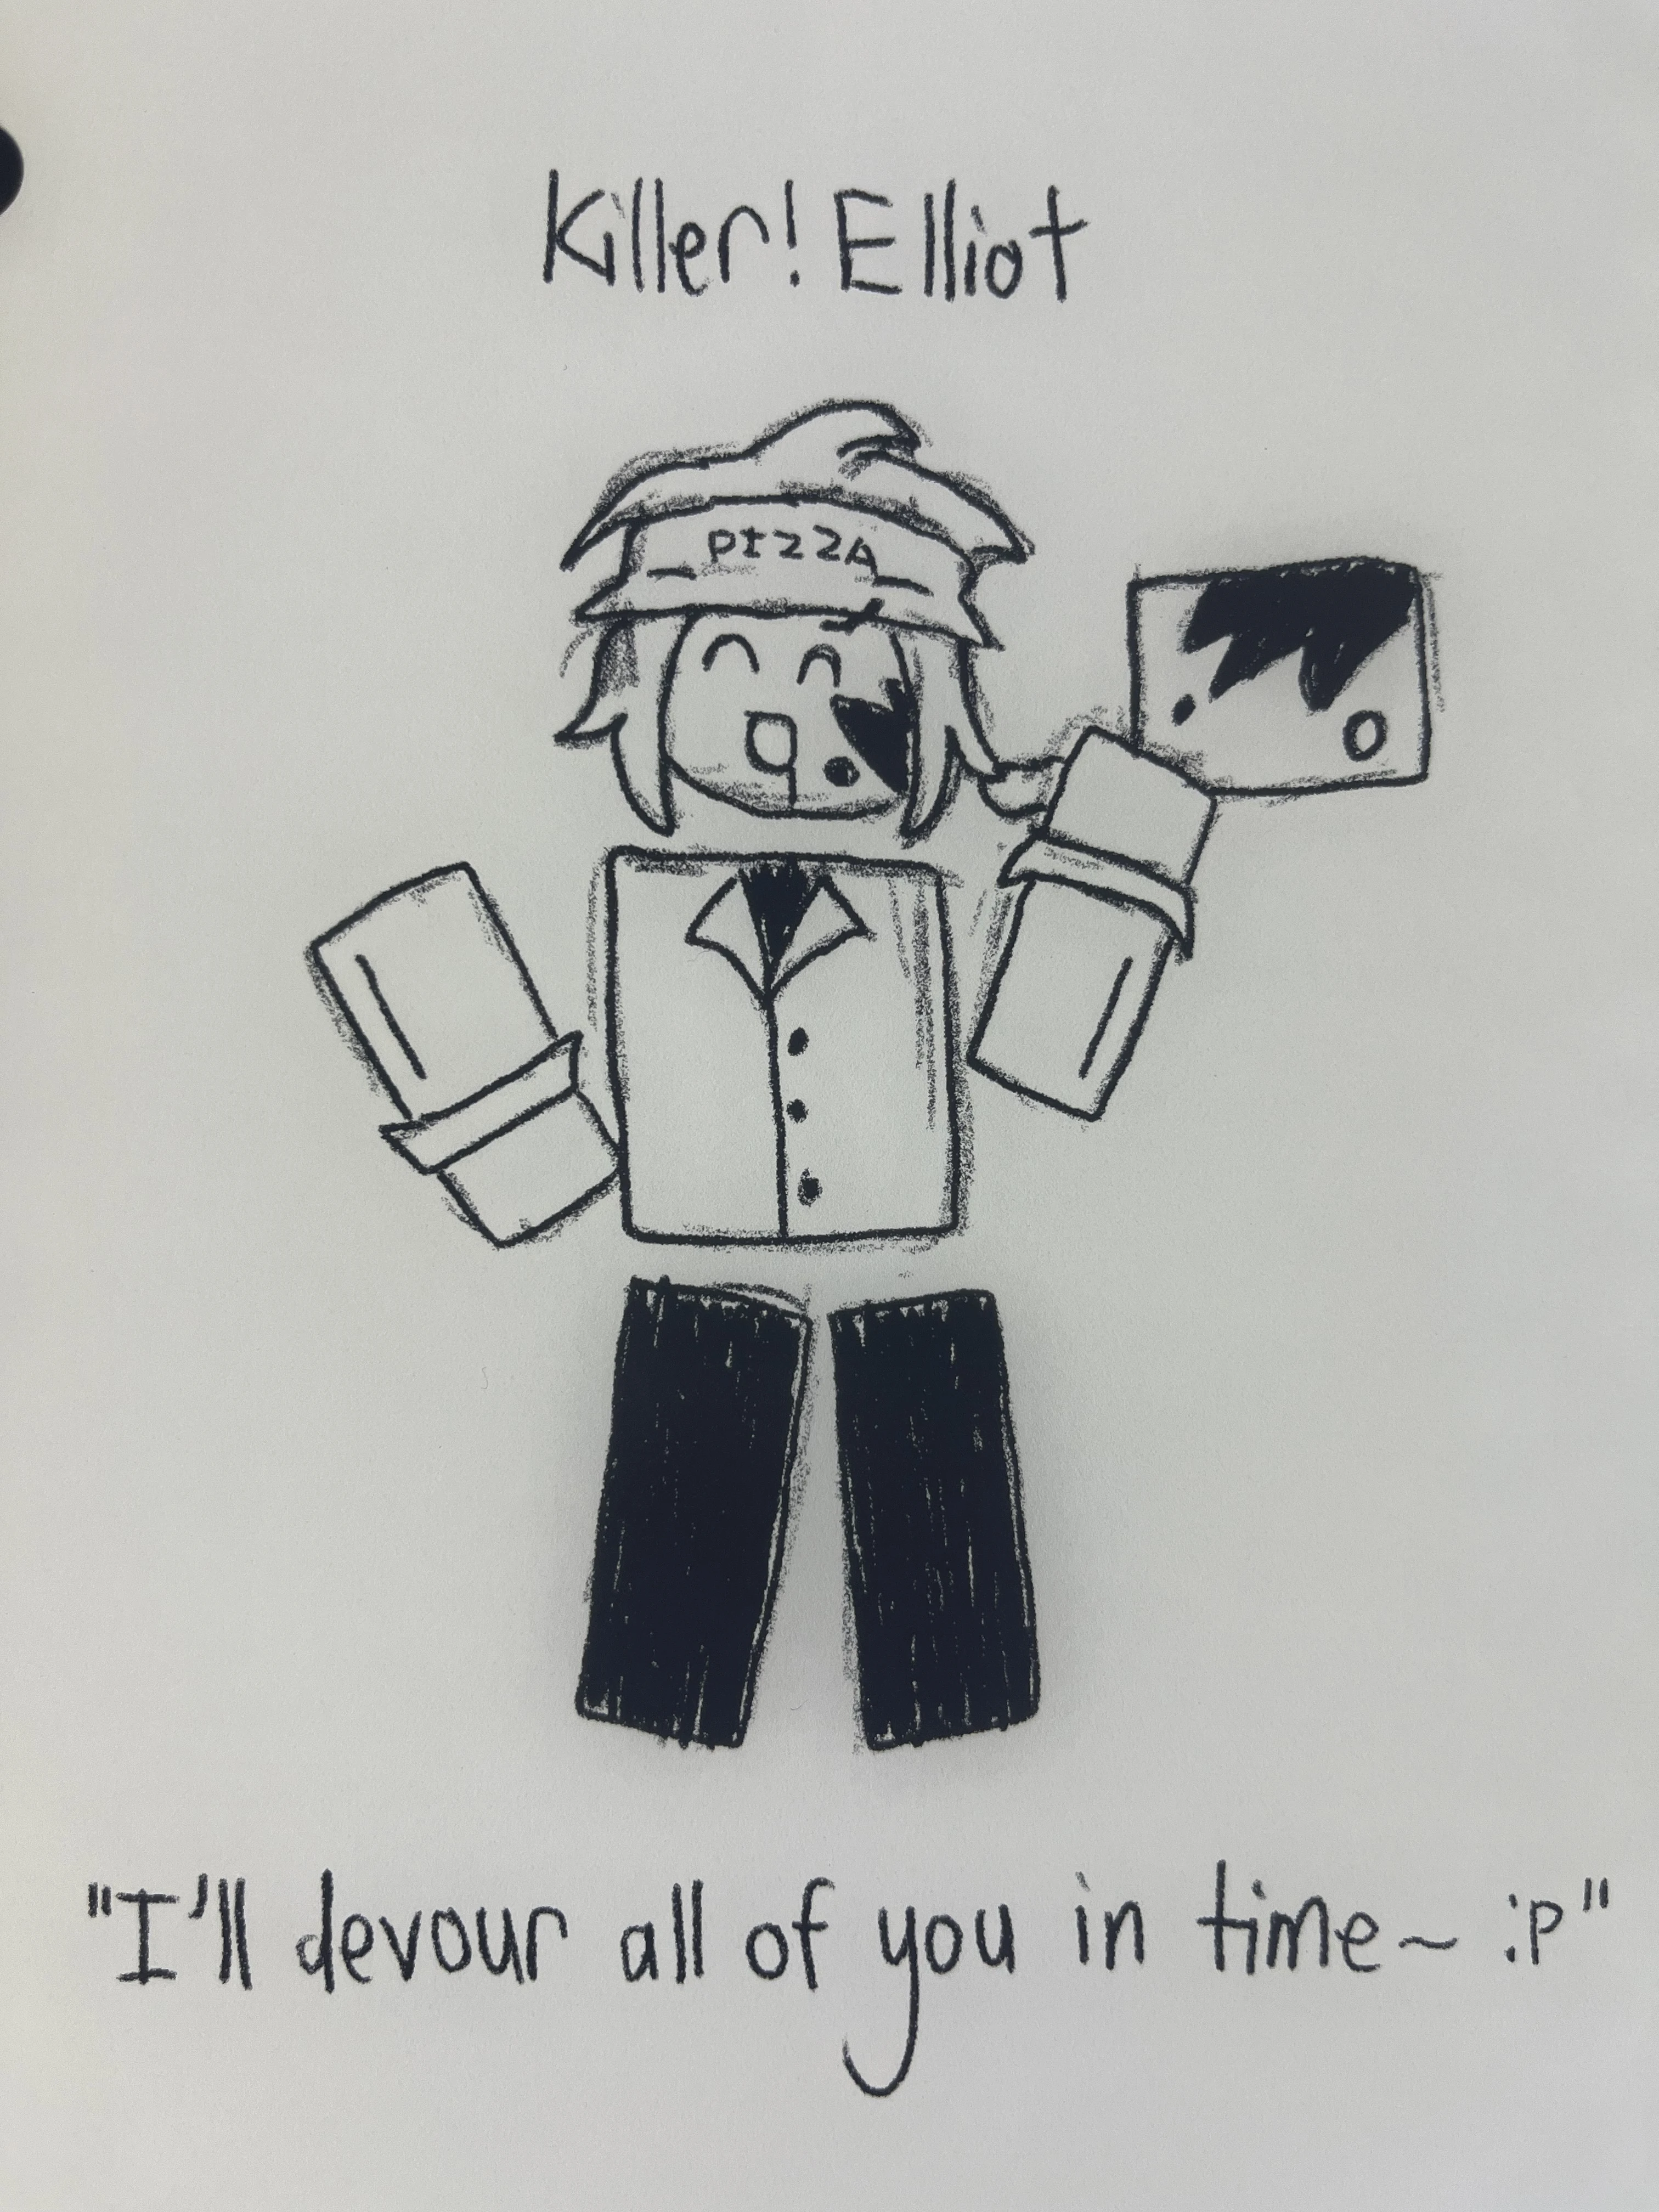 Killer! Elliot
PIZZA
"I'll devour all of you in time~ :P"